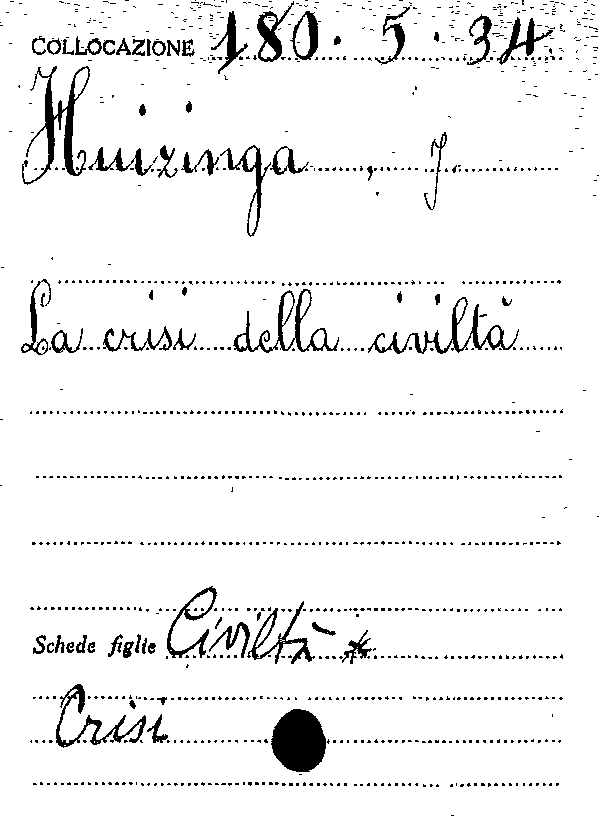 COLLOCAZIONE 180. 5. 34.
Huizinga, J.
La crisi della civiltà
Schede figlie Civiltà *
Crisi